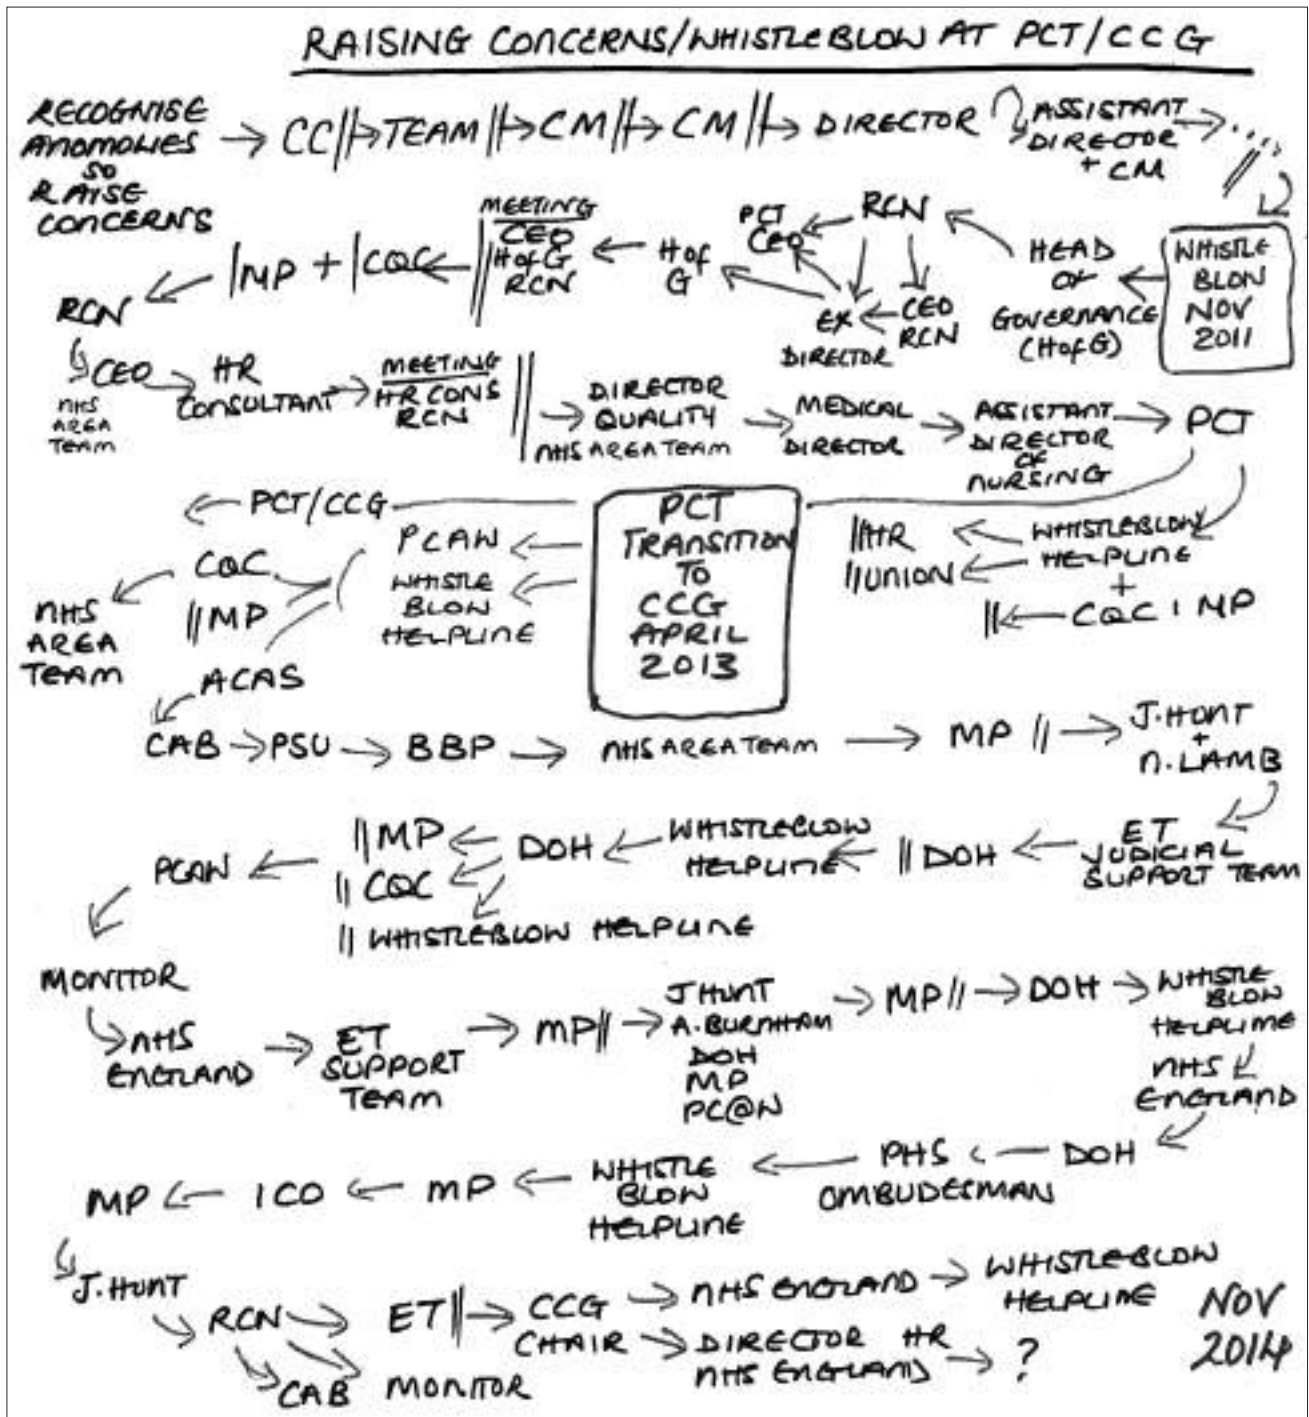 RAISING CONCERNS/WHISTLEBLOW AT PCT/CCG
RECOGNISE
ANOMOLIES
SO
RAISE
CONCERNS
→ CC ||→ TEAM ||→ CM ||→ CM ||→ DIRECTOR
ASSISTANT
DIRECTOR
+ CM
→ .....
//
WHISTLE
BLOW
NOV
2011
HEAD
OF
GOVERNANCE
(HofG)
RCN
PCT
CEO
CEO
RCN
EX
DIRECTOR
H of
G
MEETING
CEO
HofG
RCN
|MP + |CQC
RCN
CEO
NHS
AREA
TEAM
HR
CONSULTANT
MEETING
HR CONS
RCN
DIRECTOR
QUALITY
NHS AREA TEAM
MEDICAL
DIRECTOR
ASSISTANT
DIRECTOR
OF
NURSING
PCT
WHISTLEBLOW
HELPLINE
+
||← CQC | MP
||HR
||UNION
PCT
TRANSITION
TO
CCG
APRIL
2013
← PCT/CCG
PCAW
WHISTLE
BLOW
HELPLINE
CQC
||MP
NHS
AREA
TEAM
ACAS
CAB → PSU → BBP → NHS AREA TEAM → MP || →
J.HUNT
+
N.LAMB
ET
JUDICIAL
SUPPORT TEAM
|| DOH ←
WHISTLEBLOW
HELPLINE ←
DOH ←
||MP
|| CQC
|| WHISTLEBLOW HELPLINE
PCAW ←
MONITOR
NHS
ENGLAND
→ ET
SUPPORT
TEAM
→ MP|| →
J HUNT
A.BURNHAM
DOH
MP
PC@W
→ MP|| → DOH →
WHISTLE
BLOW
HELPLINE
NHS
ENGLAND
DOH
PHS
OMBUDESMAN
WHISTLE
BLOW
HELPLINE
MP ← ICO ← MP ←
J.HUNT
RCN
CAB
MONITOR
ET|| →
CCG
CHAIR
→ NHS ENGLAND →
WHISTLEBLOW
HELPLINE
→ DIRECTOR HR
NHS ENGLAND → ?
NOV
2014